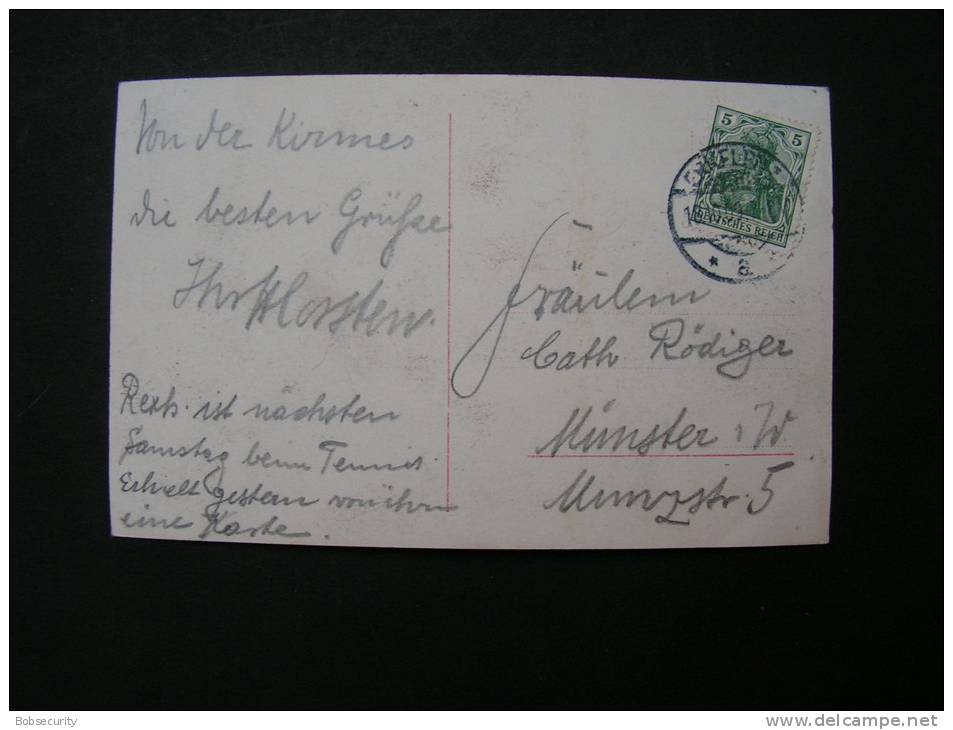 Von der Kirmes
die besten Grüsse
Rexh. ist nächsten
Samstag beim Tennis.
Erhielt gestern von ihm
eine Karte.
5 5
DEUTSCHES REICH
* a.
Fräulein
Cath Rödiger
Münster i/W
Munzstr. 5
Bobsecurity
www.delcampe.net